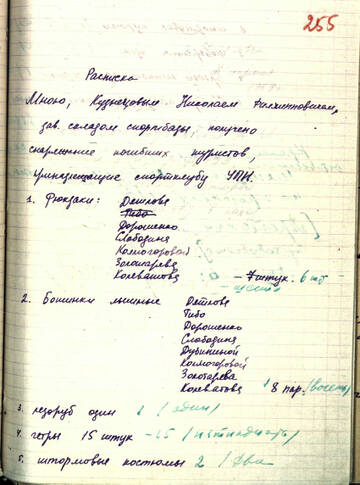 255
Расписка
Мною, Кузнецовым Николаем Филипповичем,
зав. складом спортбазы, получено
снаряжение погибших туристов,
принадлежащие спортклубу УПИ.
1. Рюкзаки: Дятлова
Тибо
Дорошенко
Слободина
Колмогоровой
Золотарева
Колеватова – 7 штук. 6 шт
2. Ботинки лыжные Дятлова
Тибо
Дорошенко
Слободина
Дубининой
Колмогоровой
Золотарева
Колеватова 8 пар. /восемь/
3. ледоруб один 1 /один/
4. гетры 15 штук – 15 /пятнадцать/
5. штормовые костюмы 2 /два